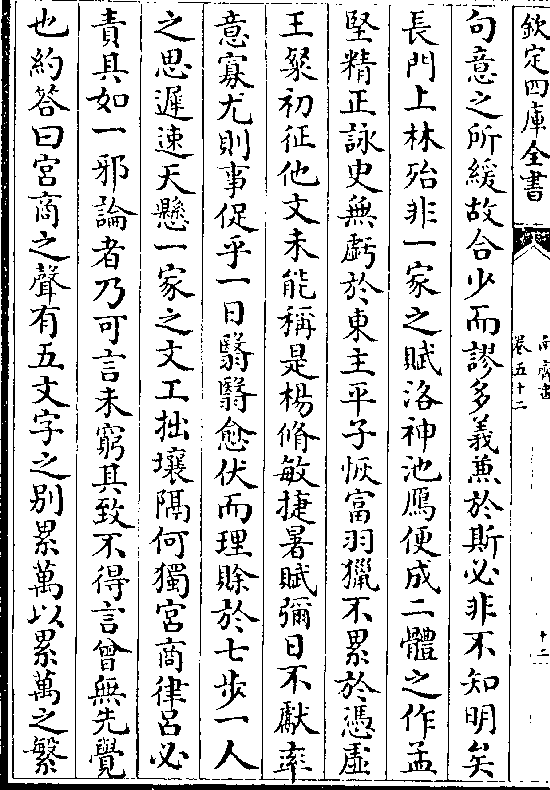 欽定四庫全書
南齊書
卷五十二
十二
句意之所緩故合少而謬多義兼於斯必非不知明矣
長門上林殆非一家之賦洛神池鴈便成二體之作孟
堅精正詠史無虧於東主平子恢富羽獵不累於憑虛
王粲初征他文未能稱是楊脩敏捷暑賦彌日不獻率
意寡尤則事促乎一日翳翳愈伏而理賖於七步一人
之思遲速天懸一家之文工拙壤隔何獨宮商律呂必
責其如一邪論者乃可言未窮其致不得言曾無先覺
也約答曰宮商之聲有五文字之别累萬以累萬之繁